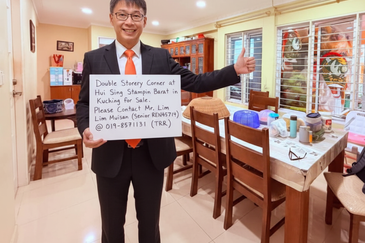 Double Storey Corner at
Hui Sing Stampin Barat in
Kuching For Sale.
Please Contact Mr. Lim
Lim Muisen (Senior REN45719)
@ 019-8591131 (TRR)